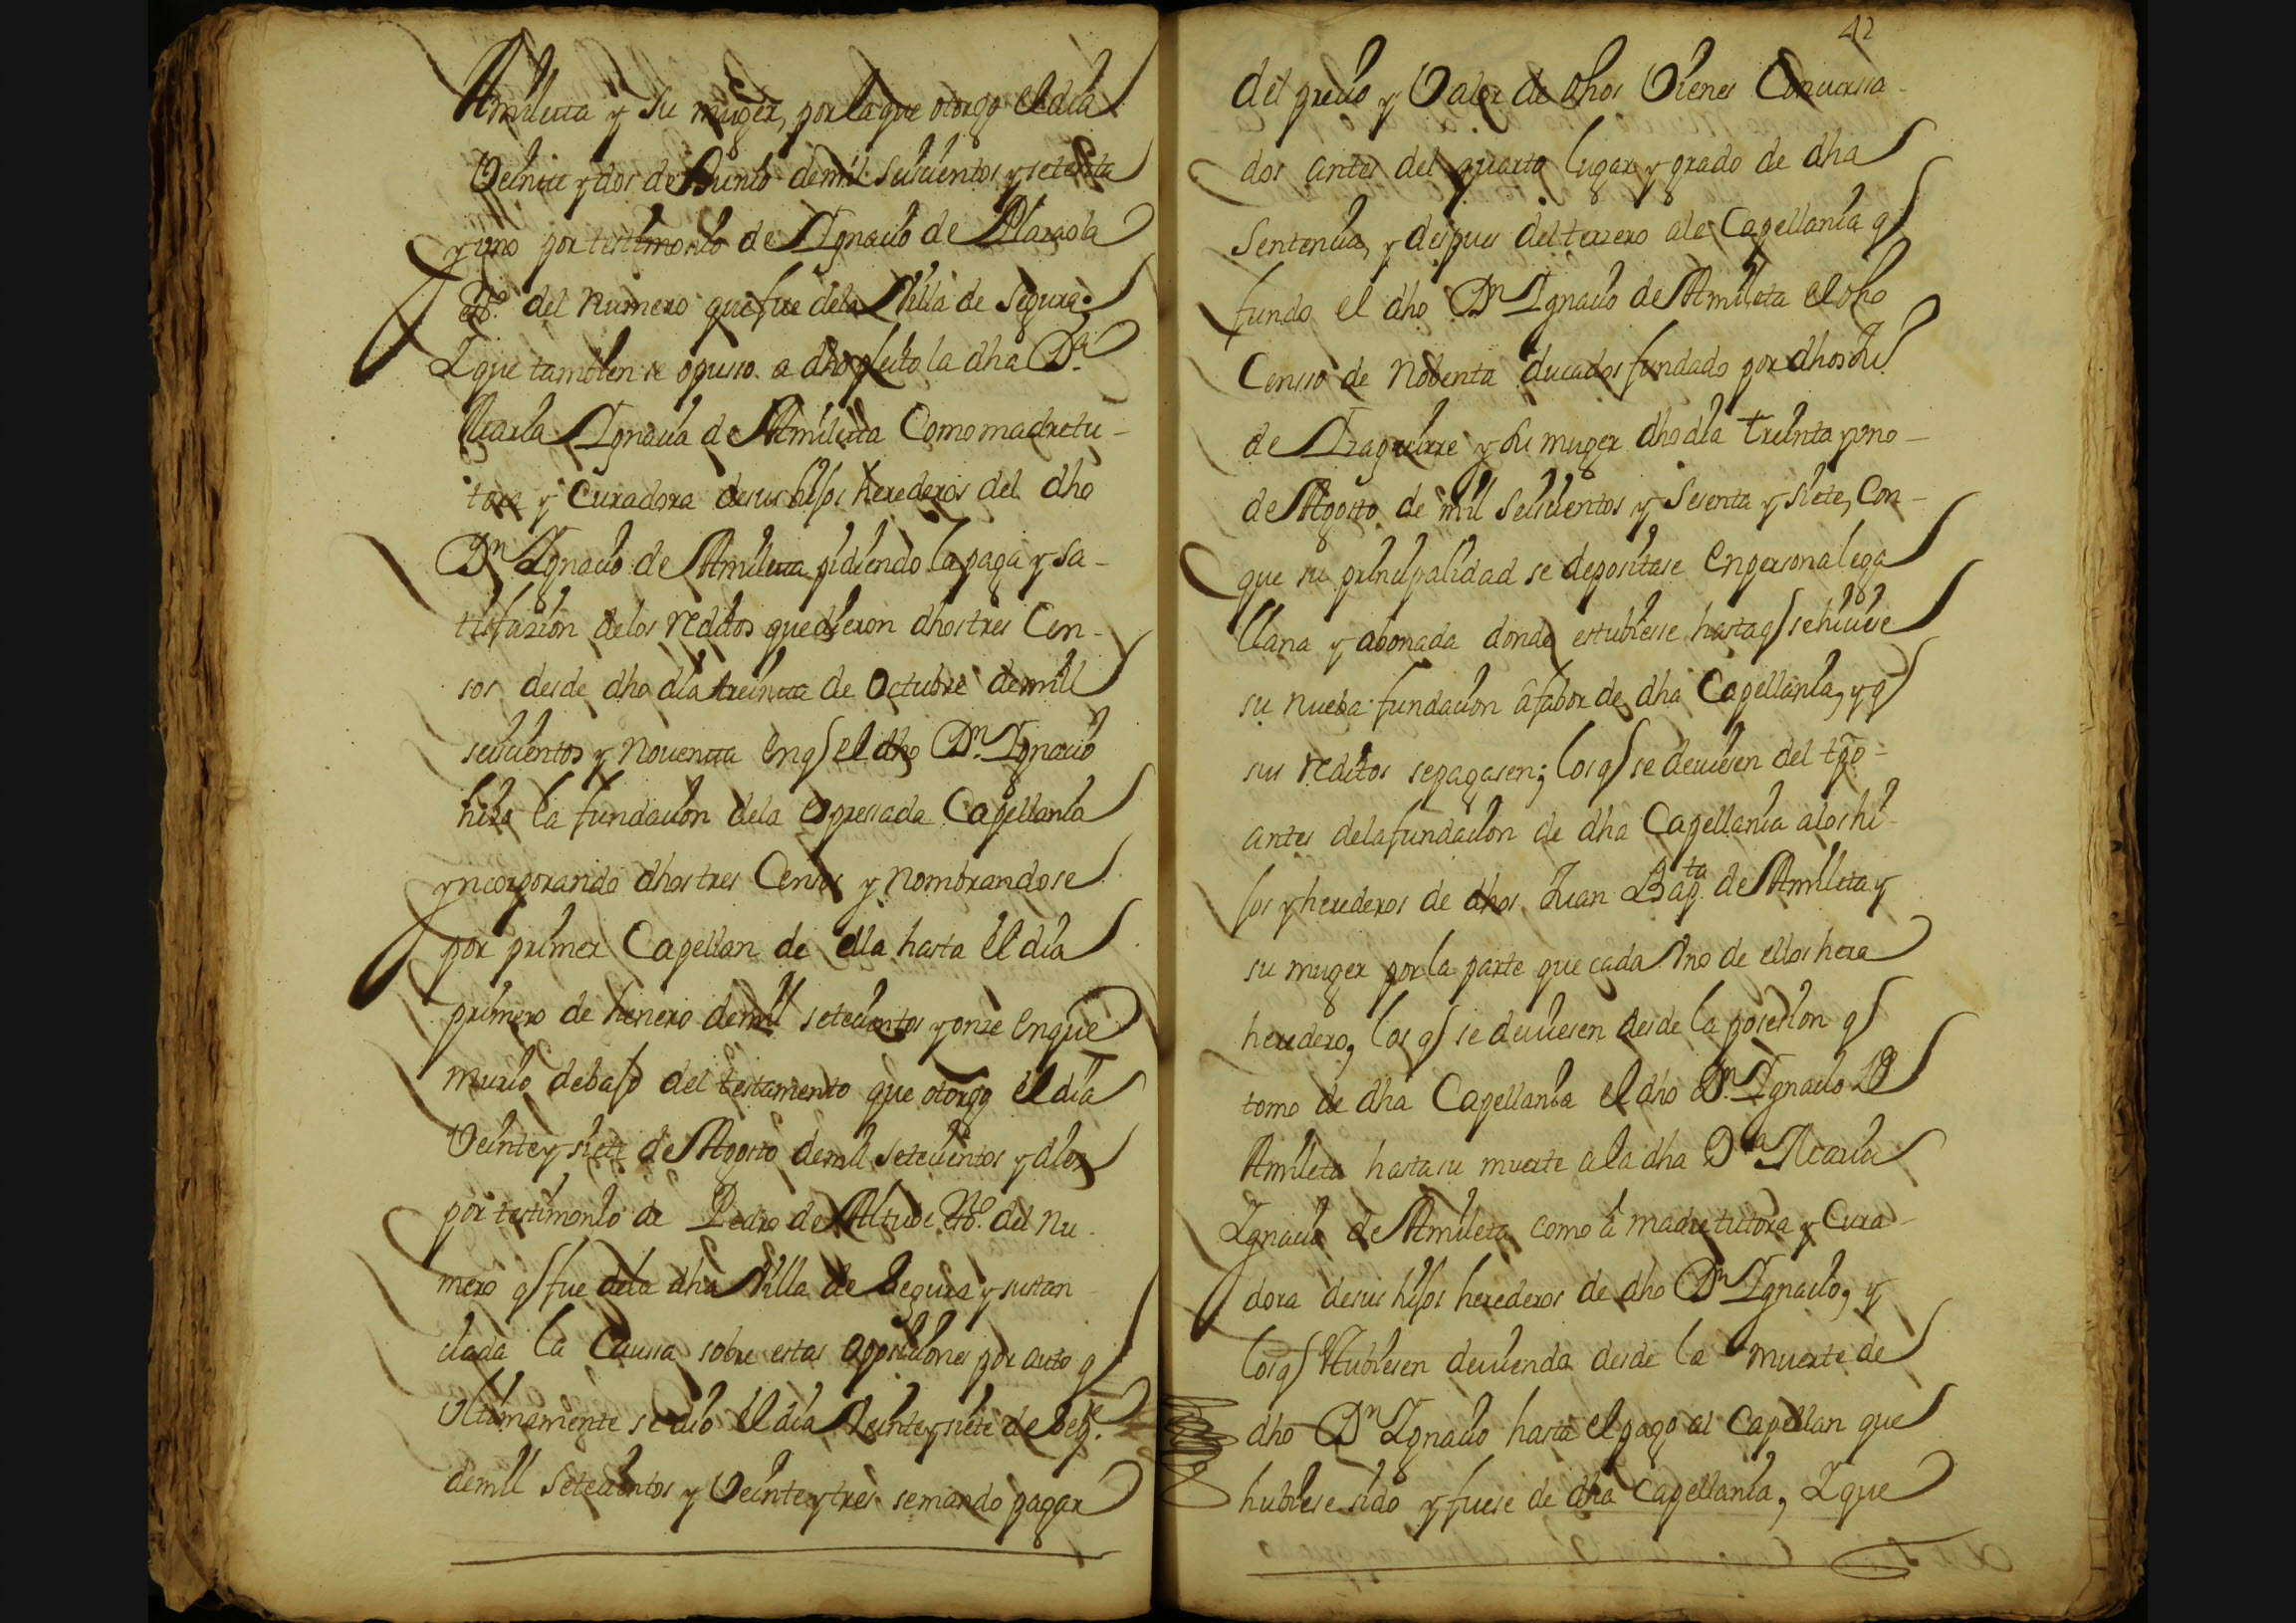 Amileta y su muger, por la que otorgo el dia
Veinte y dos de Junio de mil seiscientos y setenta
y uno por testimonio de Ygnacio de Olaraola
Ss.º del numero que fue dela Villa de Segura:
Y que tambien se opusso a dho pleito la dha D.ª
Maria Ygnacia de Amileta Como madre tu-
tora y Curadora de sus hijos herederos del dho
Dn Ygnacio de Amileta pidiendo la paga y sa-
tisfazion delos reditos que dieron dhos tres Cen-
sos desde dho dia treinta de Octubre de mill
seiscientos y Noventa en q el dho Dn Ygnacio
hizo la fundacion dela espressada Capellania
yncorporando dhos tres Censos y nombrandose
por primer Capellan de ella hasta el dia
primero de henero de mill setecientos y onze en que
murio debajo del testamento que otorgo el dia
Veinte y siete de Agosto de mill setecientos y diez
por testimonio de Pedro de Altube Ss.º del nu-
mero q fue dela dha Villa de Segura y sustan
ciada la Caussa sobre estas opposiciones por auto q
Ultimamente se dio el dia Veinte y siete de Sep.e
de mill Setecientos y Veinte y tres se mando pagar
42
del precio y Valor de dhos Vienes Concurssa-
dos antes del quarto lugar y grado de dha
Sentencia, y despues del terzero ala Capellania q
fundo el dho Dn Ygnacio de Amileta el dho
Censso de Nobenta ducados fundado por dhos Ju.º
de Yzaguirre y su muger dho dia treinta y uno-
de Agosto de mil Seiscientos y Sesenta y siete, Con-
que su principalidad se depositase en persona lega
llana y abonada donde estubiesse hasta q se hiciese
su nueba fundacion â fabor de dha Capellania, y q
sus reditos se pagasen; los q se deviesen del tpo-
antes dela fundacion de dha Capellania alos hi-
jos y herederos de dhos Juan Bap.ta de Amileta y
su muger por la parte que cada Uno de ellos hera
heredero, los q se deviesen desde la posesion q
tomo de dha Capellania el dho Dn. Ygnacio de
Amileta hasta su muerte a la dha D.ª Maria
Ygnacia de Amileta como â madre tutora y Cura-
dora de sus hijos herederos de dho Dn Ygnacio, y
los q Hubiesen devienda desde la muerte de
dho Dn Ygnacio hasta el pago al Capellan que
hubiese sido y fuese de dha Capellania, Y que